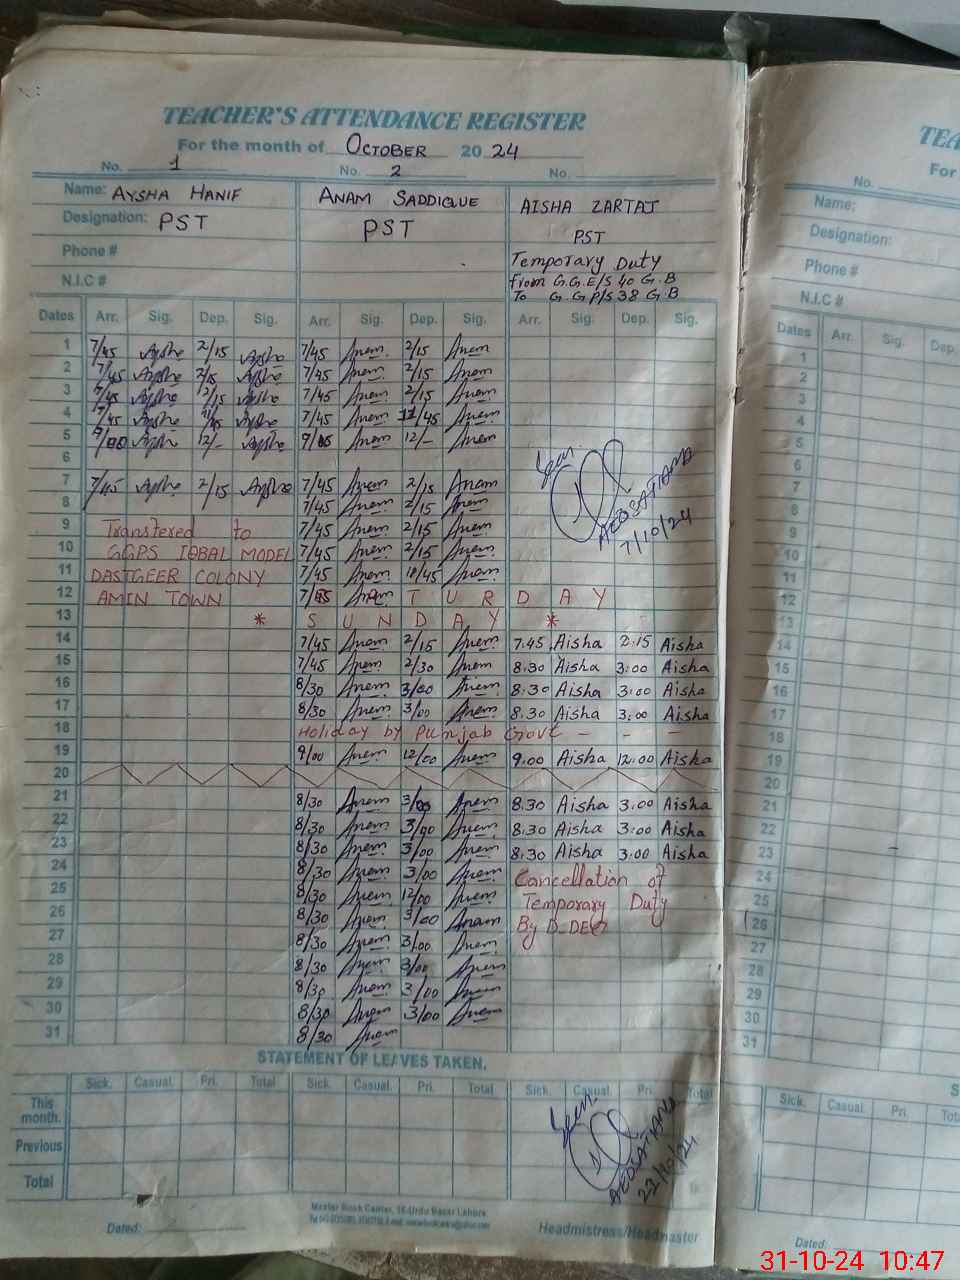 TEACHER'S ATTENDANCE REGISTER
For the month of OCTOBER 2024
No. 1 No. 2 No.
Name: AYSHA HANIF ANAM SADDIQUE AISHA ZARTAJ
Designation: PST PST PST
Phone # Temporary Duty
From G.G.E/S 40 G.B
N.I.C # To G.G P/S 38 G B
Dates Arr. Sig. Dep. Sig. Arr. Sig. Dep. Sig. Arr. Sig. Dep. Sig.
1 7/45 Aysha 2/15 Aysha 7/45 Anam 2/15 Anam
2 7/45 Aysha 2/15 Aysha 7/45 Anam 2/15 Anam
3 7/45 Aysha 2/15 Aysha 7/45 Anam 2/15 Anam
4 7/45 Aysha Aysha 7/45 Anam 11/45 Anam
5 9/00 Aysha 12/- Aysha Anam 12/- Anam
6 Seen
7 7/45 Aysha 2/15 Aysha 7/45 Anam 2/15 Anam
8 7/45 Anam 2/15 Anam
9 Transfered to 7/45 Anam 2/15 Anam
7/10/24
10 GGPS IQBAL MODEL 7/45 Anam 2/15 Anam
11 DASTGEER COLONY 7/45 Anam Anam
12 AMIN TOWN T U R D A Y
13 * S U N D A Y *
14 7/45 Anam 2/15 Anam 7.45 Aisha 2:15 Aisha
15 7/45 Anam 2/30 Anam 8:30 Aisha 3:00 Aisha
16 8/30 Anam 3/00 Anam 8:30 Aisha 3:00 Aisha
17 8/30 Anam 3/00 Anam 8:30 Aisha 3:00 Aisha
18 Holiday by Punjab Govt - - -
19 9/00 Anam 12/00 Anam 9:00 Aisha 12:00 Aisha
20
21 8/30 Anam 3/00 Anam 8:30 Aisha 3:00 Aisha
22 8/30 Anam 3/00 Anam 8:30 Aisha 3:00 Aisha
23 8/30 Anam 3/00 Anam 8:30 Aisha 3:00 Aisha
24 8/30 Anam 3/00 Anam Cancellation of
25 8/30 Anam 12/00 Anam Temporary Duty
26 8/30 Anam 3/00 Anam By D-DEO
27 8/30 Anam 3/00 Anam
28 8/30 Anam 3/00 Anam
29 8/30 Anam 3/00 Anam
30 8/30 Anam 3/00 Anam
31 8/30 Anam
STATEMENT OF LEAVES TAKEN.
Sick. Casual. Pri. Total Sick. Casual. Pri. Total Sick. Casual. Pri. Total
This month.
Seen
Previous
Total
Master Book Center, 16-Urdu Bazar Lahore
Dated: Headmistress/Headmaster
TEA
For
No.
Name;
Designation:
Phone #
N.I.C #
Dates Arr. Sig. Dep
1
2
3
4
5
6
7
8
9
10
11
12
13
14
15
16
17
18
19
20
21
22
23
24
25
26
27
28
29
30
31
S
Sick. Casual. Pri. Tot
This month.
Previous
Total
Dated:
31-10-24 10:47